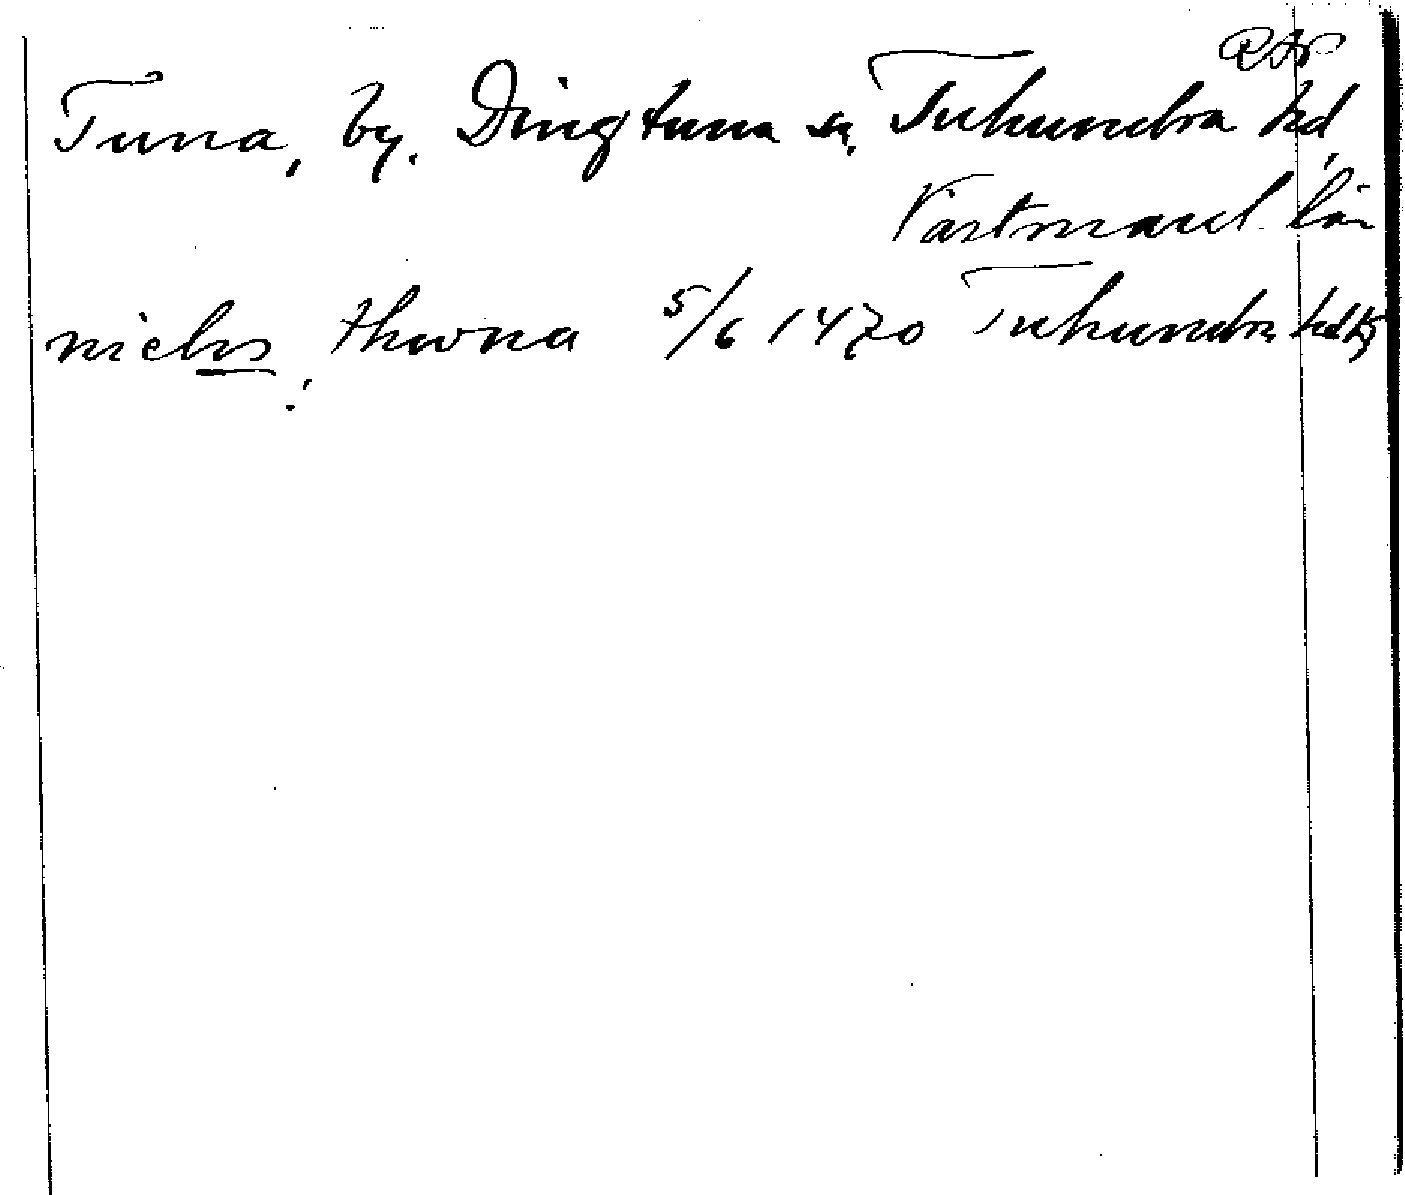 RAp
Tuna, by. Dingtuna sn, Tuhundra hd,
Västmanl. län
niels, thwna 5/6 1470 Tuhundra hd